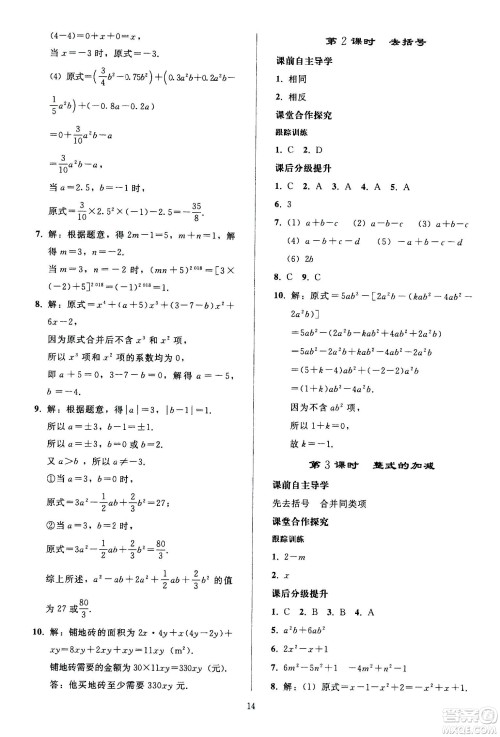 (4-4)=0+x²+0=x².
当 x=3 时,原式=3²=9.
(4) 原式=(3/4 b²-0.75b²)+(1/2 a²b-
1/5 a²b)+(-0.8a-0.2a)
=0+3/10 a²b-a
=3/10 a²b-a.
当 a=2.5,b=-1 时,
原式=3/10×2.5²×(-1)-2.5=-35/8.
7. 解:根据题意,得 2m-1=5,n+5=3,
解得 m=3,n=-2.
当 m=3,n=-2 时,(mn+5)²⁰¹⁸=[3×
(-2)+5]²⁰¹⁸=(-1)²⁰¹⁸=1.
8. 解:原式=x⁴+(a+5)x³+(3-7-b)x²+
6x-2,
因为原式合并后不含 x³ 和 x² 项,
所以 x³ 和 x² 项的系数均为 0.
即 a+5=0,3-7-b=0.
解得 a=-5,b=-4.
9. 解:根据题意,得|a|=3,|b-1|=1.
所以 a=±3,b-1=±1.
所以 a=±3,b=2 或 b=0.
又 a>b,所以 a=3,b=2 或 b=0.
①当 a=3,b=0 时,
原式=3a²-1/3 b²=27;
②当 a=3,b=2 时,
原式=3a²-1/3 b²=80/3.
综上所述,a²-1/3 b²+2a²+b-b 的值
为 27 或 80/3.
10. 解:铺地砖的面积为 2x·4y+x(4y-2y)+
xy=8xy+2xy+xy=11xy(米²),
铺地砖需要的金额为 30×11xy=330xy(元).
答:他买地砖至少需要 330xy 元.
第 2 课时 去括号
课前自主导学
1. 相同
2. 相反
课堂合作探究
跟踪训练
1. C 2. D
课后分级提升
1. C 2. C 3. C 4. D 5. A
6. 3
7. (1) a+b-c (2) a-b-c (3) a-b+c
(4) a+b-c (5) a-b-c
(6) 2b
8. C 9. C
10. 解:原式=5ab²-[2a²b-(4ab²-
2a²b)]
=5ab²-[2a²b-4ab²+2a²b]
=5ab²-(4a²b-4ab²)
=5ab²-4a²b+4ab²
=9ab²-4a²b.
11. 解:因为(x²+x-1)+(kx²-2x+
1)
=x²+x-1+kx²-2x+1
=(1+k)x²-x,
因为不含 x² 项,
所以 1+k=0,
故 k=-1.
第 3 课时 整式的加减
课前自主导学
先去括号 合并同类项
课堂合作探究
跟踪训练
1. 2-m
2. x
课后分级提升
1. C 2. C 3. B 4. B
5. a²b+6ab²
6. x²-x+1
7. 6m²-5n²+1 4m²-4n²+1
8. 解:(1) 原式=-x²+x+4.
14
答案圈